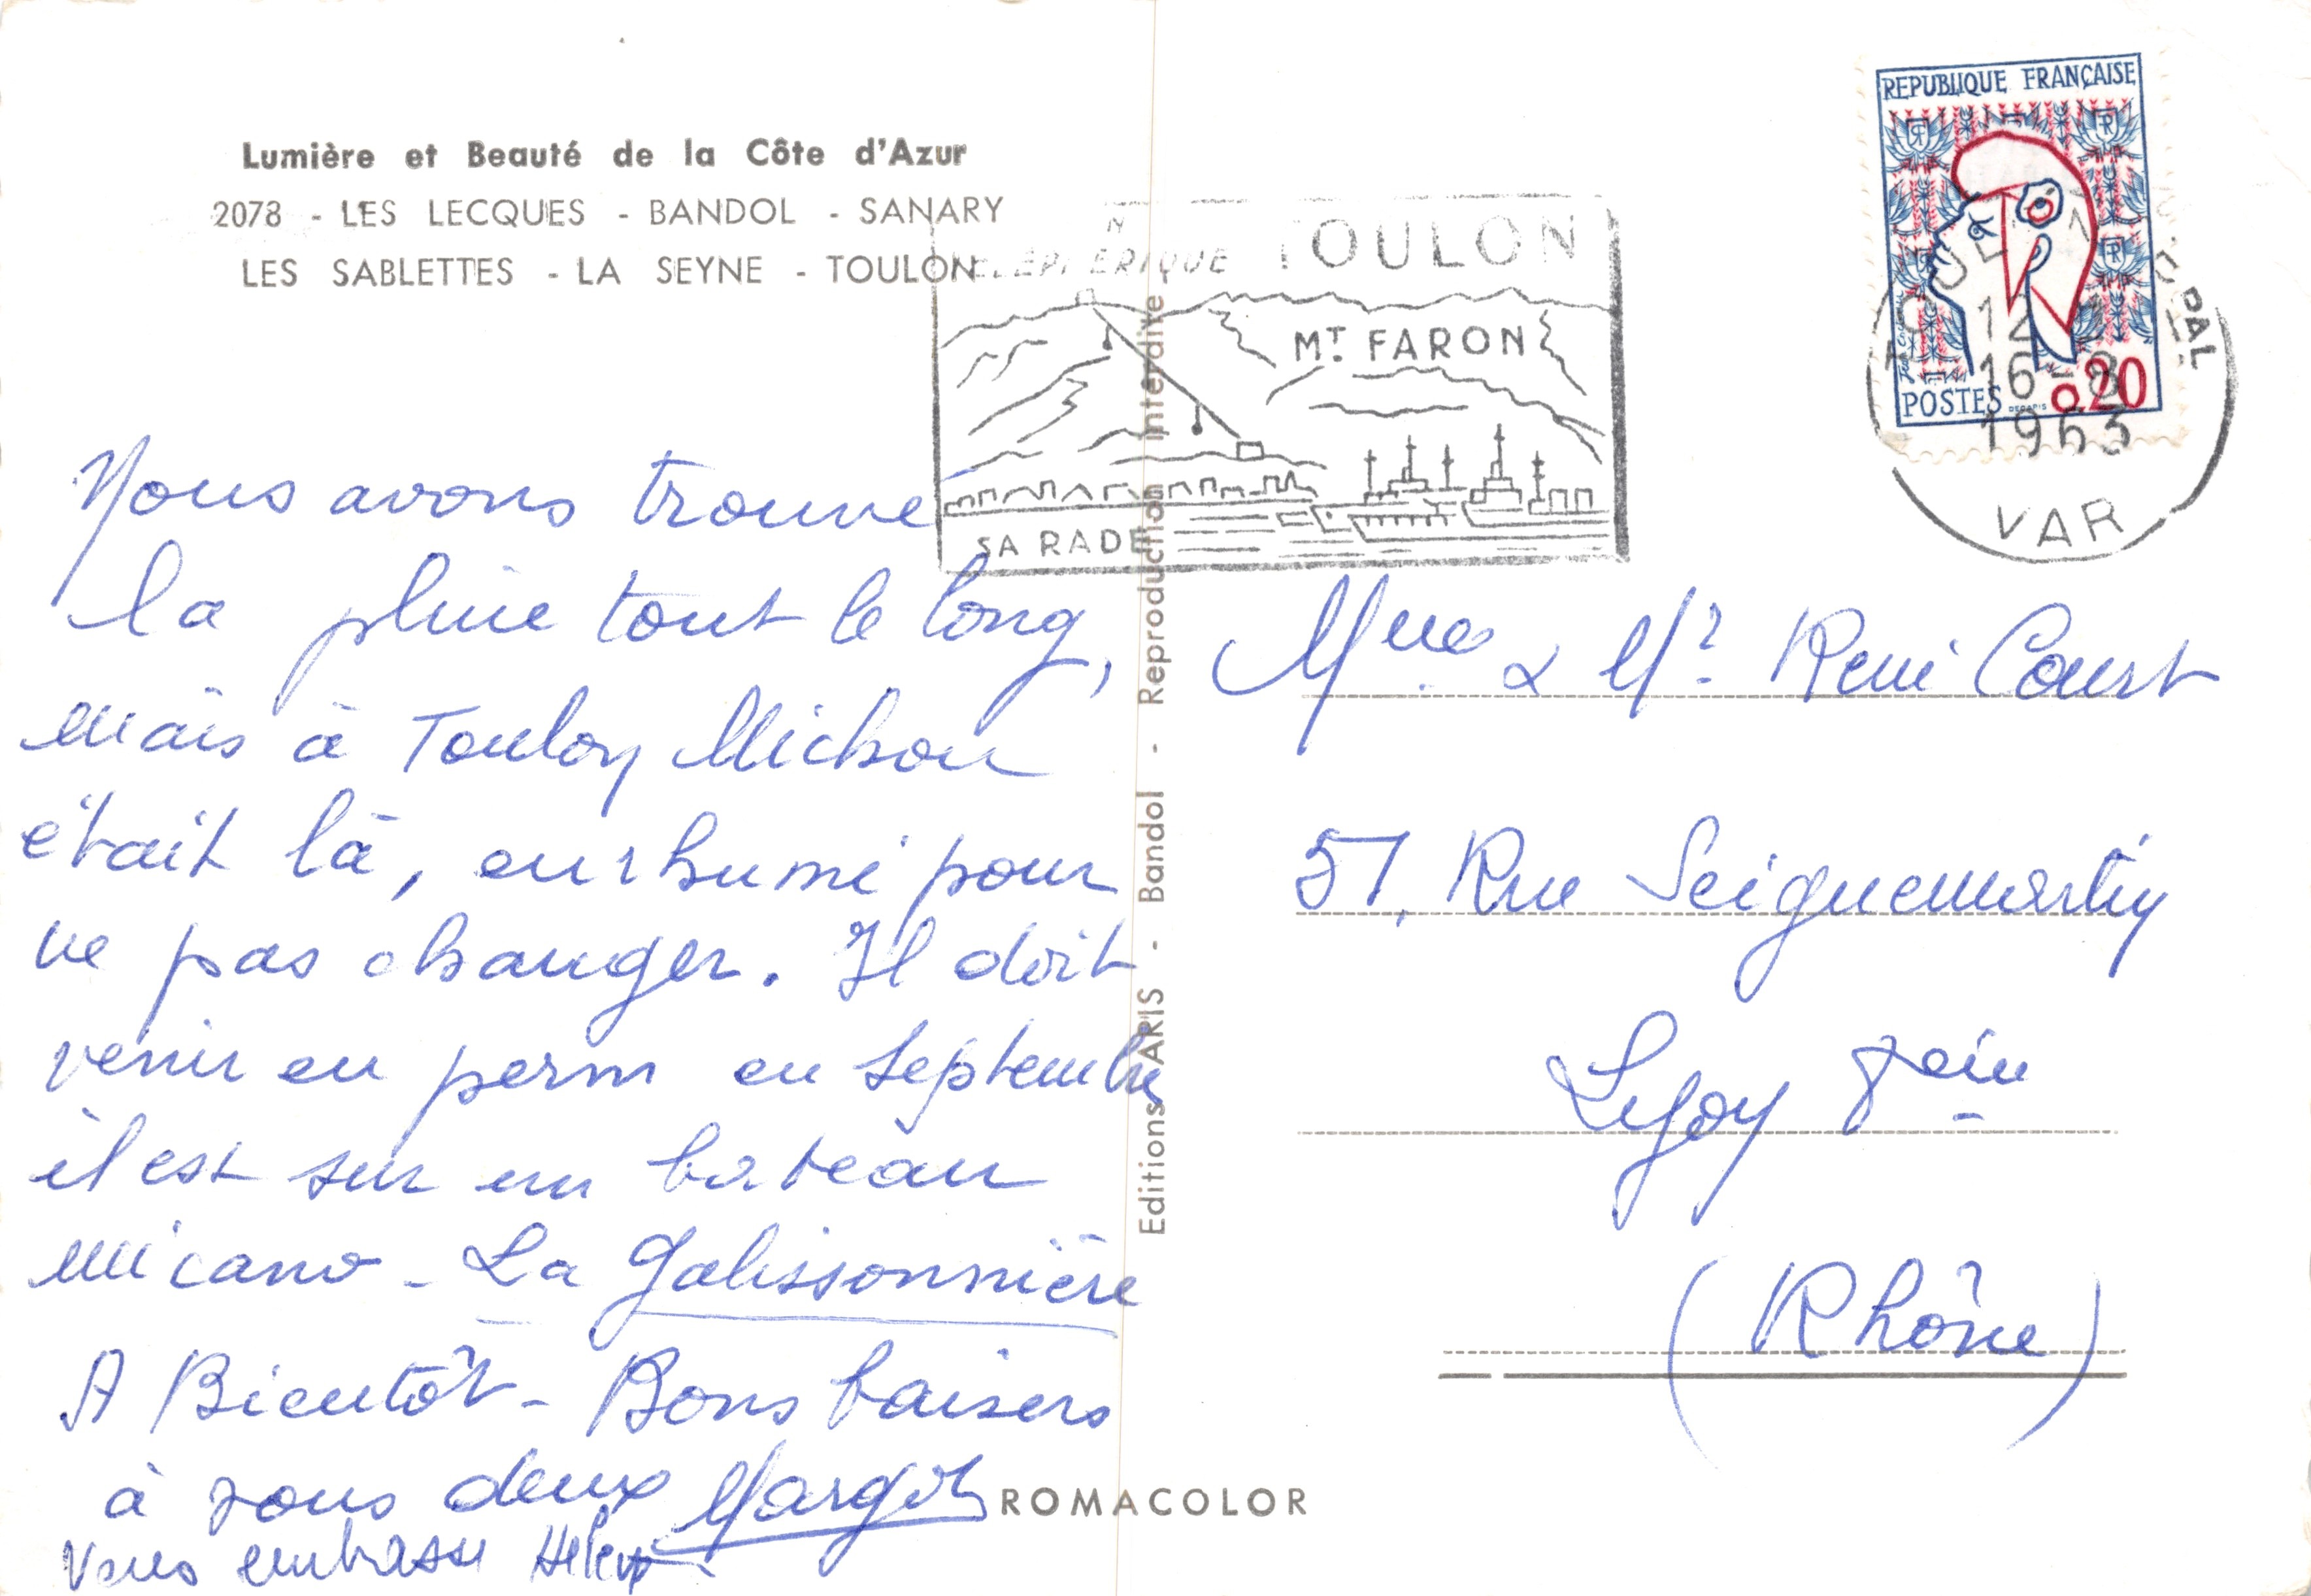 Lumière et Beauté de la Côte d'Azur
2078 - LES LECQUES - BANDOL - SANARY
LES SABLETTES - LA SEYNE - TOULON
Nous avons trouvé
la pluie tout le long,
mais à Toulon Michou
était là, enrhumé pour
ne pas changer. Il doit
venir en perm en Septembre
il est sur un bateau
mécano - La Galissonnière
A Bientôt - Bons baisers
à vous deux Margot
Vous embrasse
Editions ARIS - Bandol - Reproduction interdite
ROMACOLOR
TOULON
MT. FARON
SA RADE
REPUBLIQUE FRANÇAISE
POSTES 0,20
DECARIS
16-8
1963
VAR
Mme & Mr René Court
57, Rue Seiguemartin
Lyon 8ein
(Rhône)